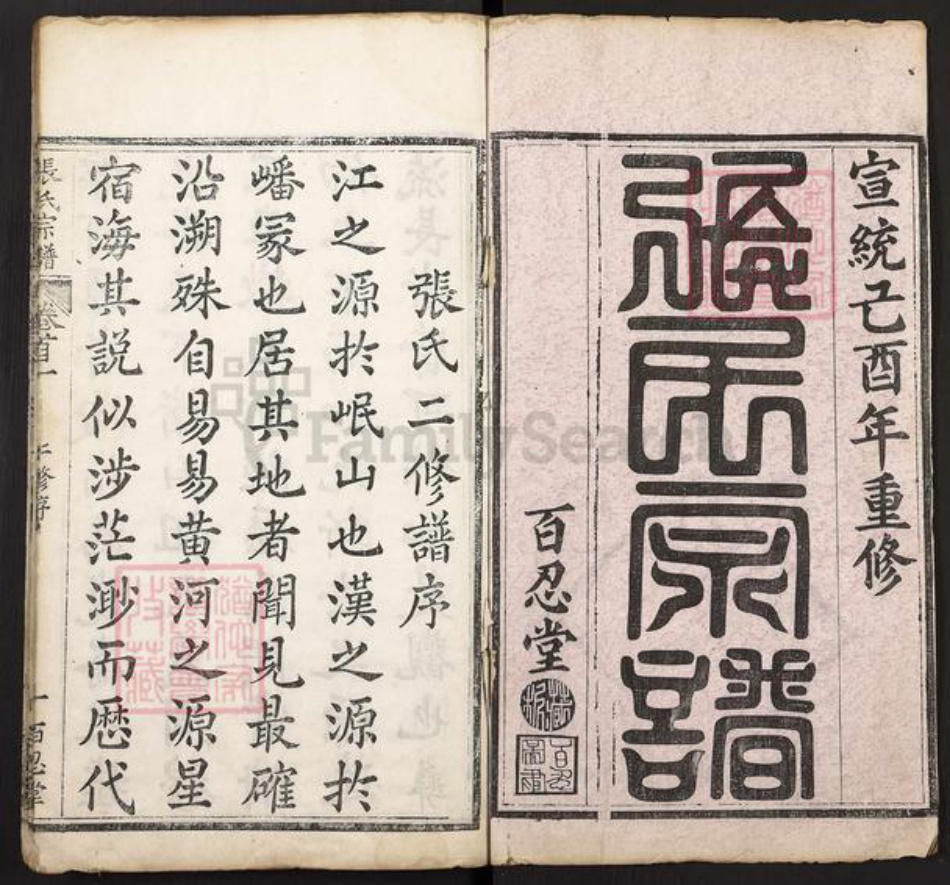 宣統己酉年重修
張氏宗譜
百忍堂
張氏二修譜序
江之源於岷山也漢之源於
嶓冢也居其地者聞見最確
沿溯殊自易易黄河之源星
宿海其説似涉茫渺而歷代
張氏宗譜 卷首一 二修序 一 百忍堂
FamilySearch